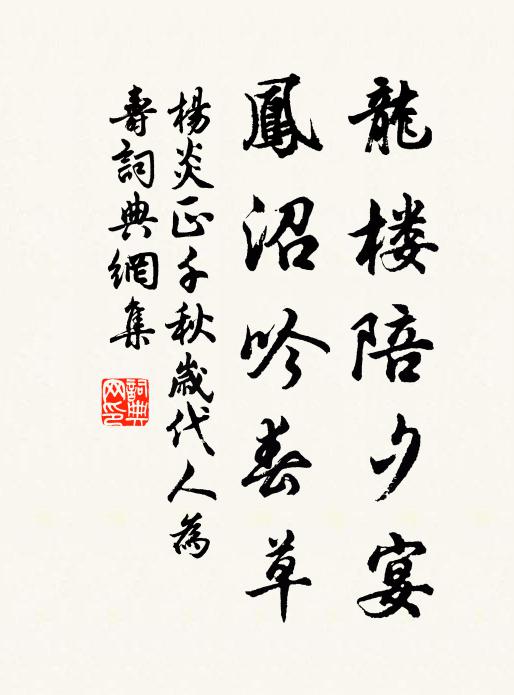 龍楼陪夕宴
鳳沼吟春草
楊炎正千秋歲代人為
壽詞典網集
詞典網印